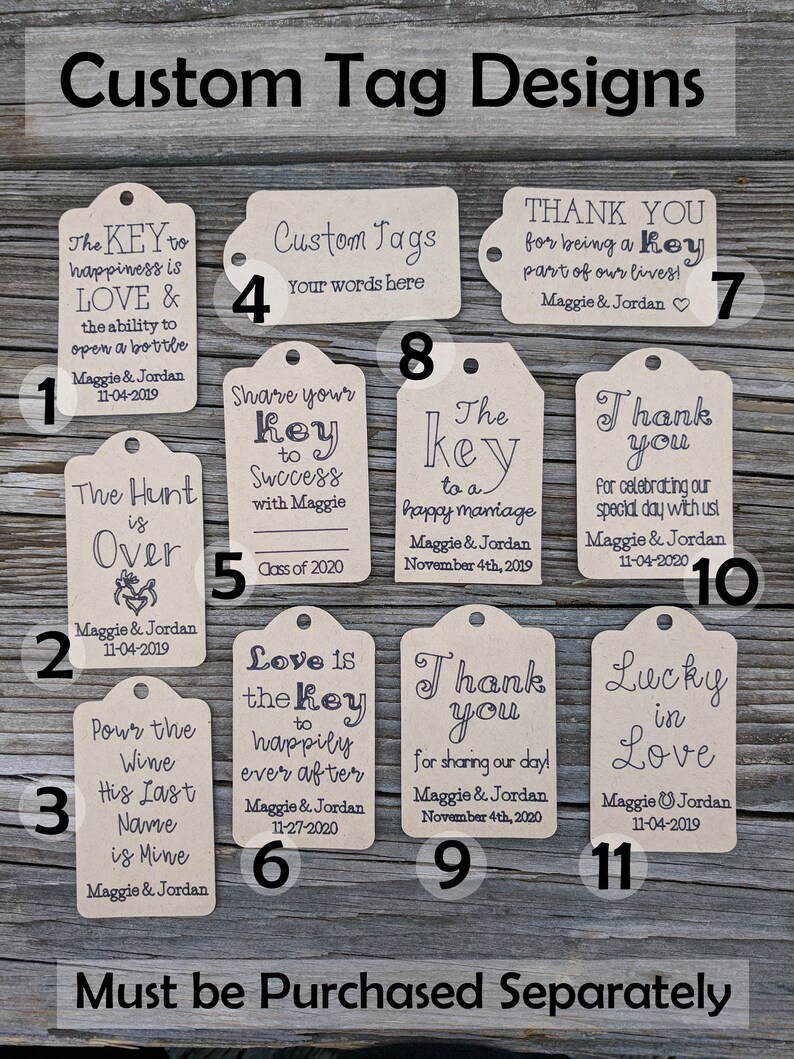 Custom Tag Designs
The KEY to
happiness is
LOVE &
the ability to
open a bottle
Maggie & Jordan
11-04-2019
1
Custom Tags
your words here
4
THANK YOU
for being a key
part of our lives!
Maggie & Jordan ♡
7
The Hunt
is
Over
Maggie & Jordan
11-04-2019
2
Share your
key
to
Success
with Maggie
Class of 2020
5
8
The
key
to a
happy marriage
Maggie & Jordan
November 4th, 2019
Thank
you
for celebrating our
special day with us!
Maggie & Jordan
11-04-2020
10
Pour the
Wine
His Last
Name
is Mine
Maggie & Jordan
3
Love is
the key
to
happily
ever after
Maggie & Jordan
11-27-2020
6
Thank
you
for sharing our day!
Maggie & Jordan
November 4th, 2020
9
Lucky
in
Love
Maggie Jordan
11-04-2019
11
Must be Purchased Separately